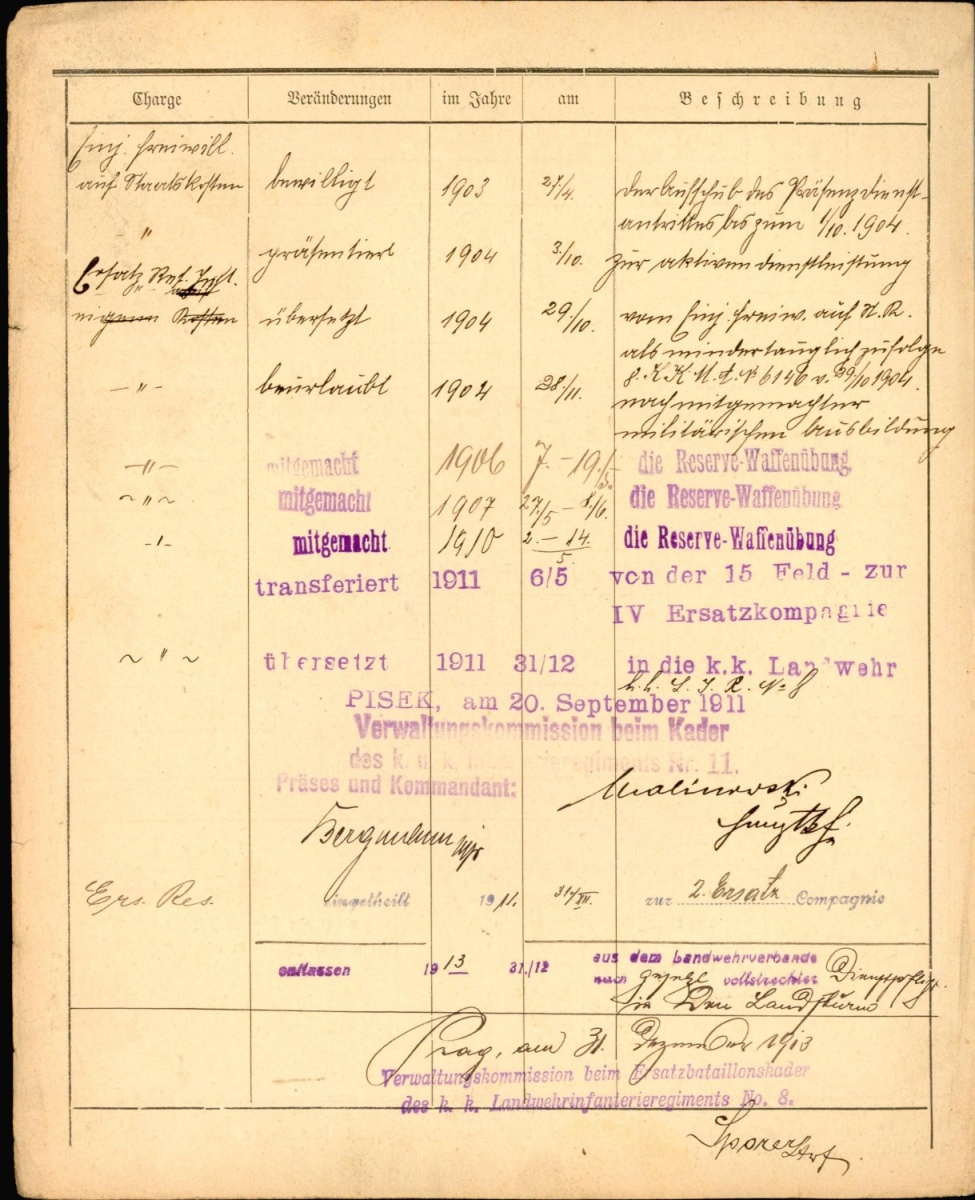 Charge Veränderungen im Jahre am Beschreibung
Einj. Freiwill.
auf Staatskosten bewilligt 1903 27/4. der Aufschub des Präsenzdienst-
antrittes bis zum 1/10. 1904.
" präsentiert 1904 3/10. zur aktiven Dienstleistung
Ersatz Res. Inft.
übersetzt 1904 29./10. vom Einj. Freiw. auf
als mindertauglich zufolge
6146 v. 29/10 1904.
—"— beurlaubt 1904 28./11. nach mitgemachter
militärischen Ausbildung
—"— mitgemacht 1906 7.–19./ die Reserve-Waffenübung
~"~ mitgemacht 1907 27/5 – 8/6. die Reserve-Waffenübung
-"- mitgemacht 1910 2.–14./5. die Reserve-Waffenübung
transferiert 1911 6/5 von der 15 Feld - zur
IV Ersatzkompagnie
~"~ übersetzt 1911 31/12 in die k.k. Landwehr
k.k. L. I. R. No 8
PISEK, am 20. September 1911
Verwaltungskommission beim Kader
des k. u. k. Infanterieregiments Nr. 11.
Präses und Kommandant:
Malinovski
Hauptm.
Bergmann mjr
Ers. Res. eingetheilt 1911. 31/XII. zur 2. Ersatz Compagnie
entlassen 1913 31./12 aus dem Landwehrverbande
nach gesetzl vollstreckter Dienstpflicht
in den Landsturm
Prag, am 31. Dezember 1913
Verwaltungskommission beim Ersatzbataillonskader
des k. k. Landwehrinfanterieregiments No. 8.